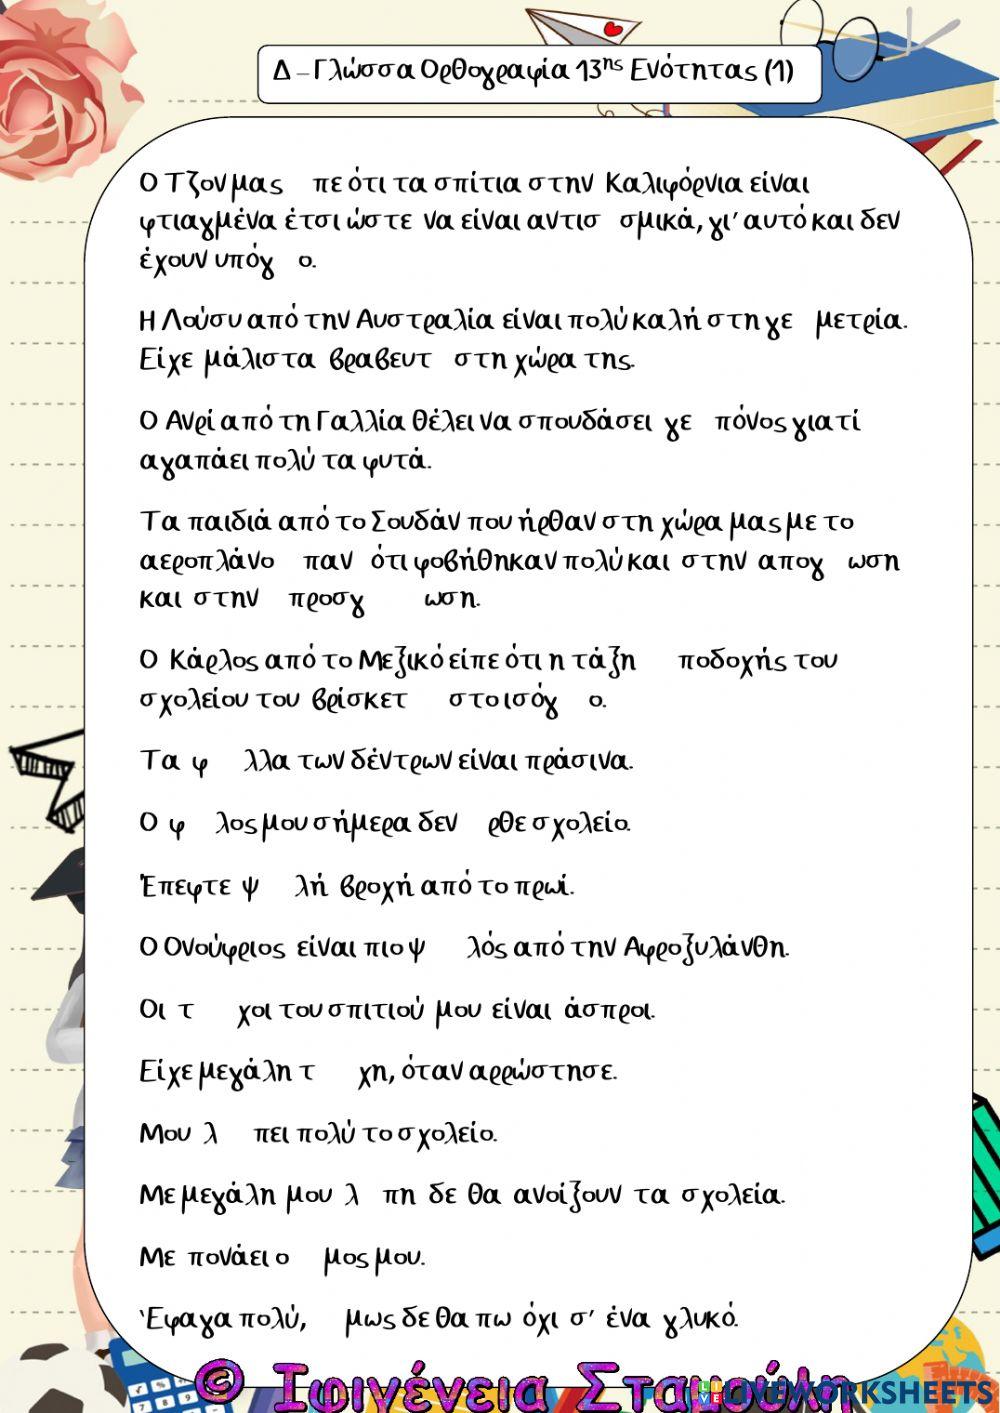 Δ – Γλώσσα Ορθογραφία 13ης Ενότητας (1)
Ο Τζον μας πε ότι τα σπίτια στην Καλιφόρνια είναι
φτιαγμένα έτσι ώστε να είναι αντισ σμικά, γι' αυτό και δεν
έχουν υπόγ ο.
Η Λούσυ από την Αυστραλία είναι πολύ καλή στη γε μετρία.
Είχε μάλιστα βραβευτ στη χώρα της.
Ο Ανρί από τη Γαλλία θέλει να σπουδάσει γε πόνος γιατί
αγαπάει πολύ τα φυτά.
Τα παιδιά από το Σουδάν που ήρθαν στη χώρα μας με το
αεροπλάνο παν ότι φοβήθηκαν πολύ και στην απογ ωση
και στην προσγ ωση.
Ο Κάρλος από το Μεξικό είπε ότι η τάξη ποδοχής του
σχολείου του βρίσκετ στο ισόγ ο.
Τα φ λλα των δέντρων είναι πράσινα.
Ο φ λος μου σήμερα δεν ρθε σχολείο.
Έπεφτε ψ λή βροχή από το πρωί.
Ο Ονούφριος είναι πιο ψ λός από την Αφροξυλάνθη.
Οι τ χοι του σπιτιού μου είναι άσπροι.
Είχε μεγάλη τ χη, όταν αρρώστησε.
Μου λ πει πολύ το σχολείο.
Με μεγάλη μου λ πη δε θα ανοίξουν τα σχολεία.
Με πονάει ο μος μου.
Έφαγα πολύ, μως δε θα πω όχι σ' ένα γλυκό.
© Ιφιγένεια Σταμούλη
LIVEWORKSHEETS